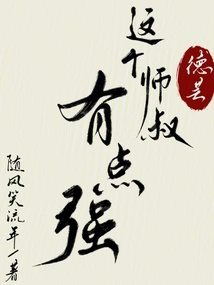 德芸
这个师叔
有点强
随风笑流年一著